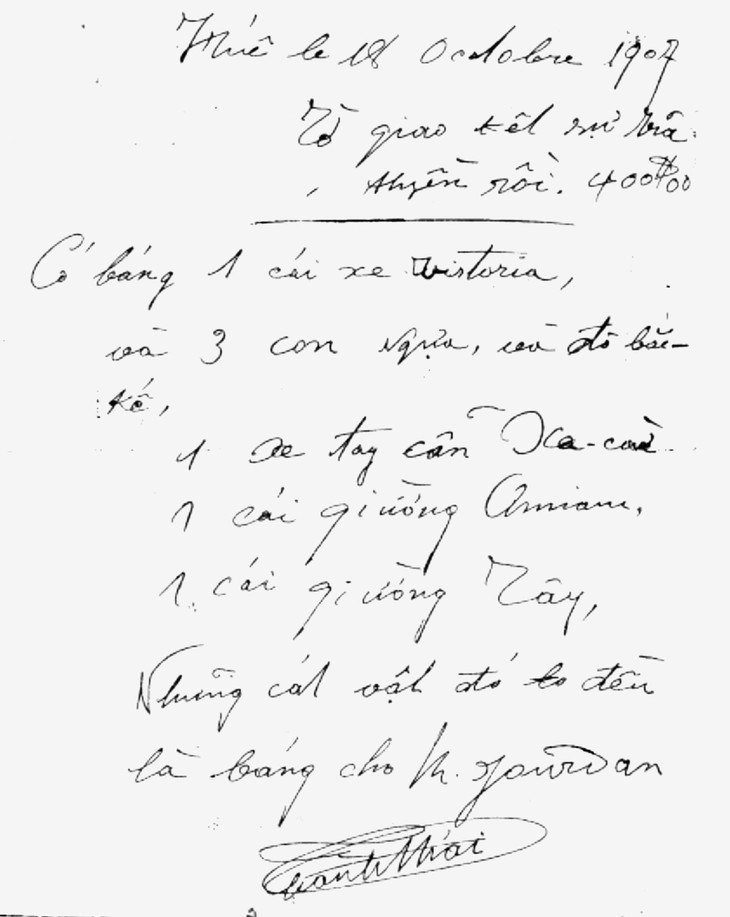 Huế le 18 Octobre 1907
Tờ giao kèl sự
thyền rồi. 400$00
Có báng 1 cái xe victoria,
và 3 con ngựa, và đồ bắc-
kế,
1 xe tay cẩn Xa-cừ
1 cái giường Annam,
1 cái giường Tây,
Những các vật đó đều
là báng cho M. Jourdan
Thành Thái